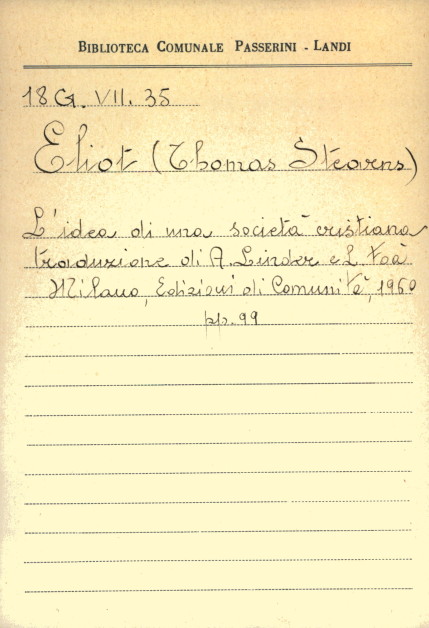 BIBLIOTECA COMUNALE PASSERINI - LANDI
18 G. VII. 35
Eliot (Thomas Stearns)
L'idea di una società cristiana
traduzione di A. Linder e L. Foà
Milano, Edizioni di Comunità, 1960
pp. 99